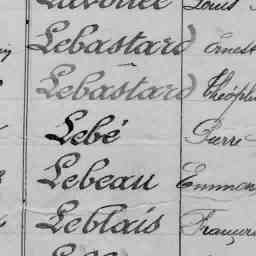 Louis
Lebastard Ernest
Lebastard Théophi
Lebé Pierre
Lebeau Emman
Leblais Françoi